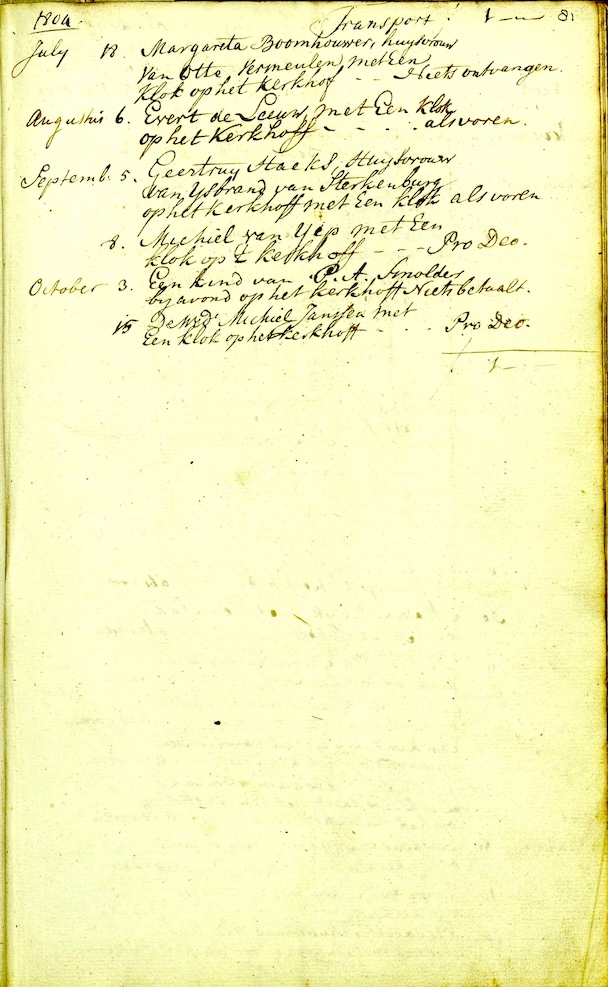 1804. Transport ƒ 1 — „ — 81
July 18. Margareta Boomhouwer, huysvrouw
van Otto Vermeulen, met Een
klok op het kerkhof - - Niets ontvangen.
Augustus 6. Evert de Leeuw, met Een klok
op het kerkhoff - - - - als voren.
Septemb. 5. Geertruy Staeks, Huysvrouw
van Ysbrand van Sterkenburg
op het kerkhoff met Een klok als voren
8. Michiel van Yep met Een
klok op 't kerkhoff - - - Pro Deo.
October 3. Een kind van P. A. Smolders
by avond op het kerkhoff Niets betaalt.
15 De Wed. Michiel Janssen met
Een klok op het kerkhoff - - - Pro Deo.
1 —